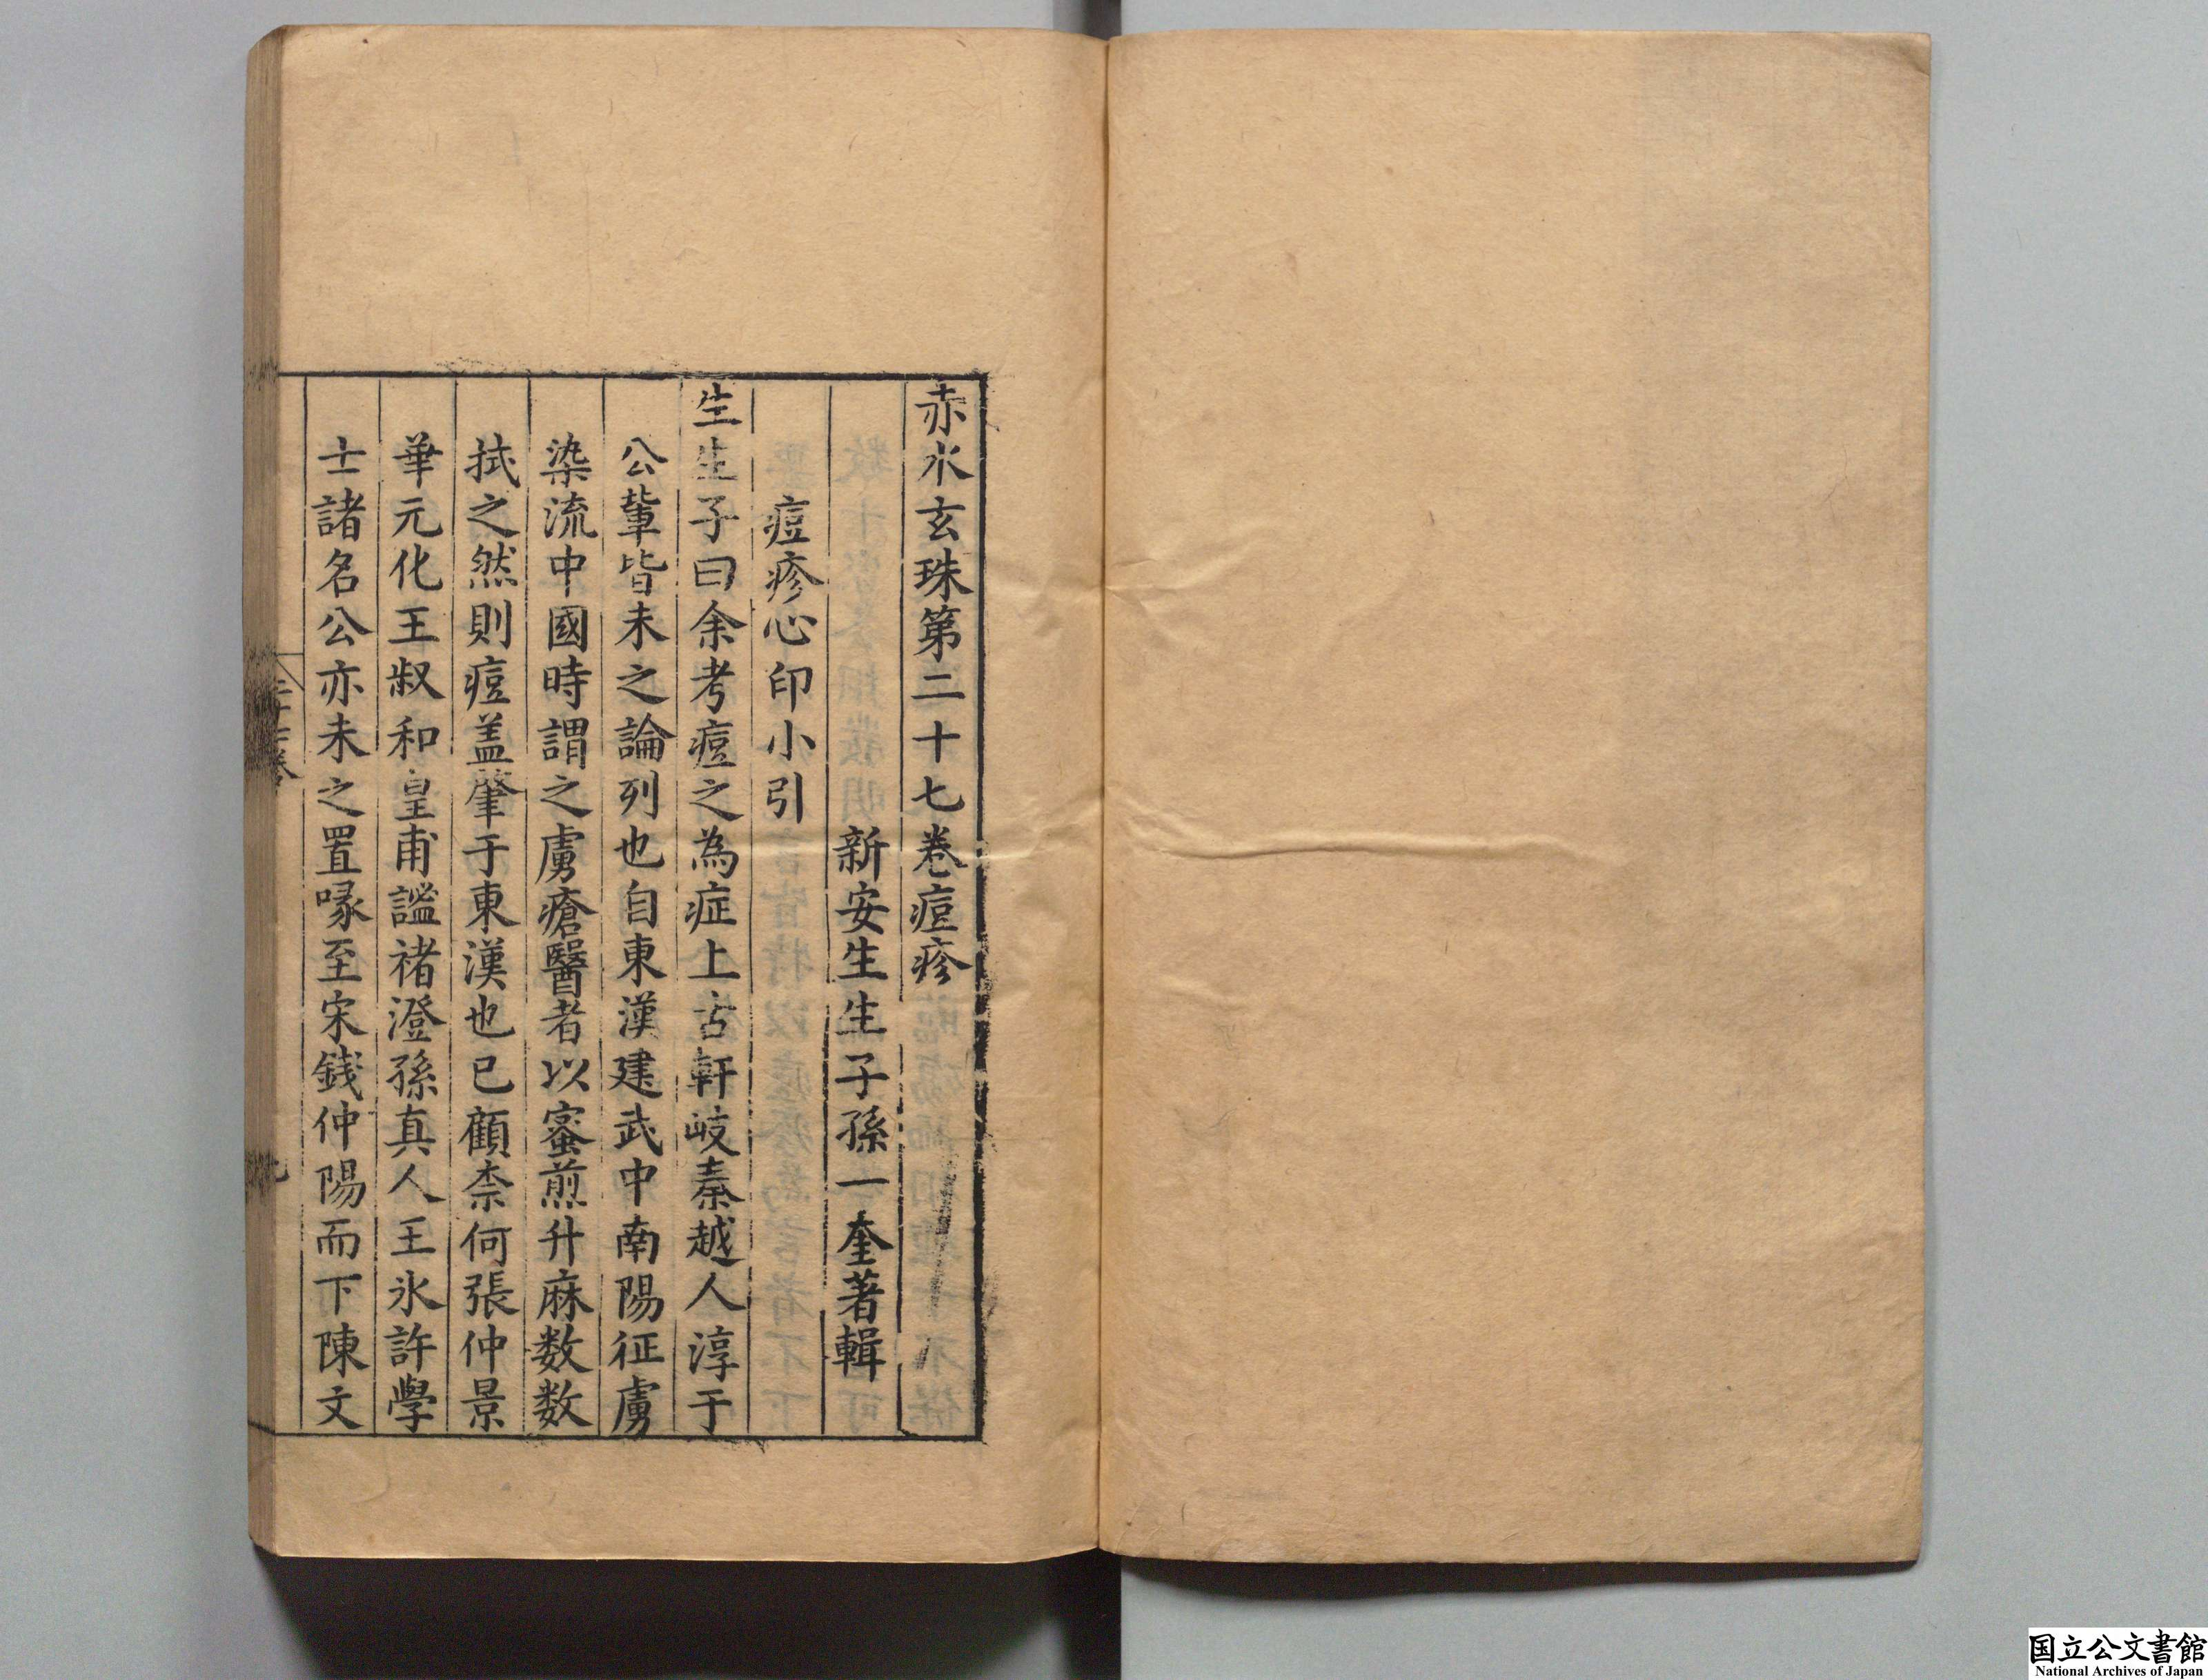 赤水玄珠第二十七卷痘疹
新安生生子孫一奎著輯
痘疹心印小引
生生子曰余考痘之為症上古軒岐秦越人淳于
公軰皆未之論列也自東漢建武中南陽征虜
染流中國時謂之虜瘡醫者以蜜煎升麻数数
拭之然則痘盖肇于東漢也已顧柰何張仲景
華元化王叔和皇甫謐禇澄孫真人王氷許學
士諸名公亦未之置喙至宋錢仲陽而下陳文
二十七卷
国立公文書館
National Archives of Japan